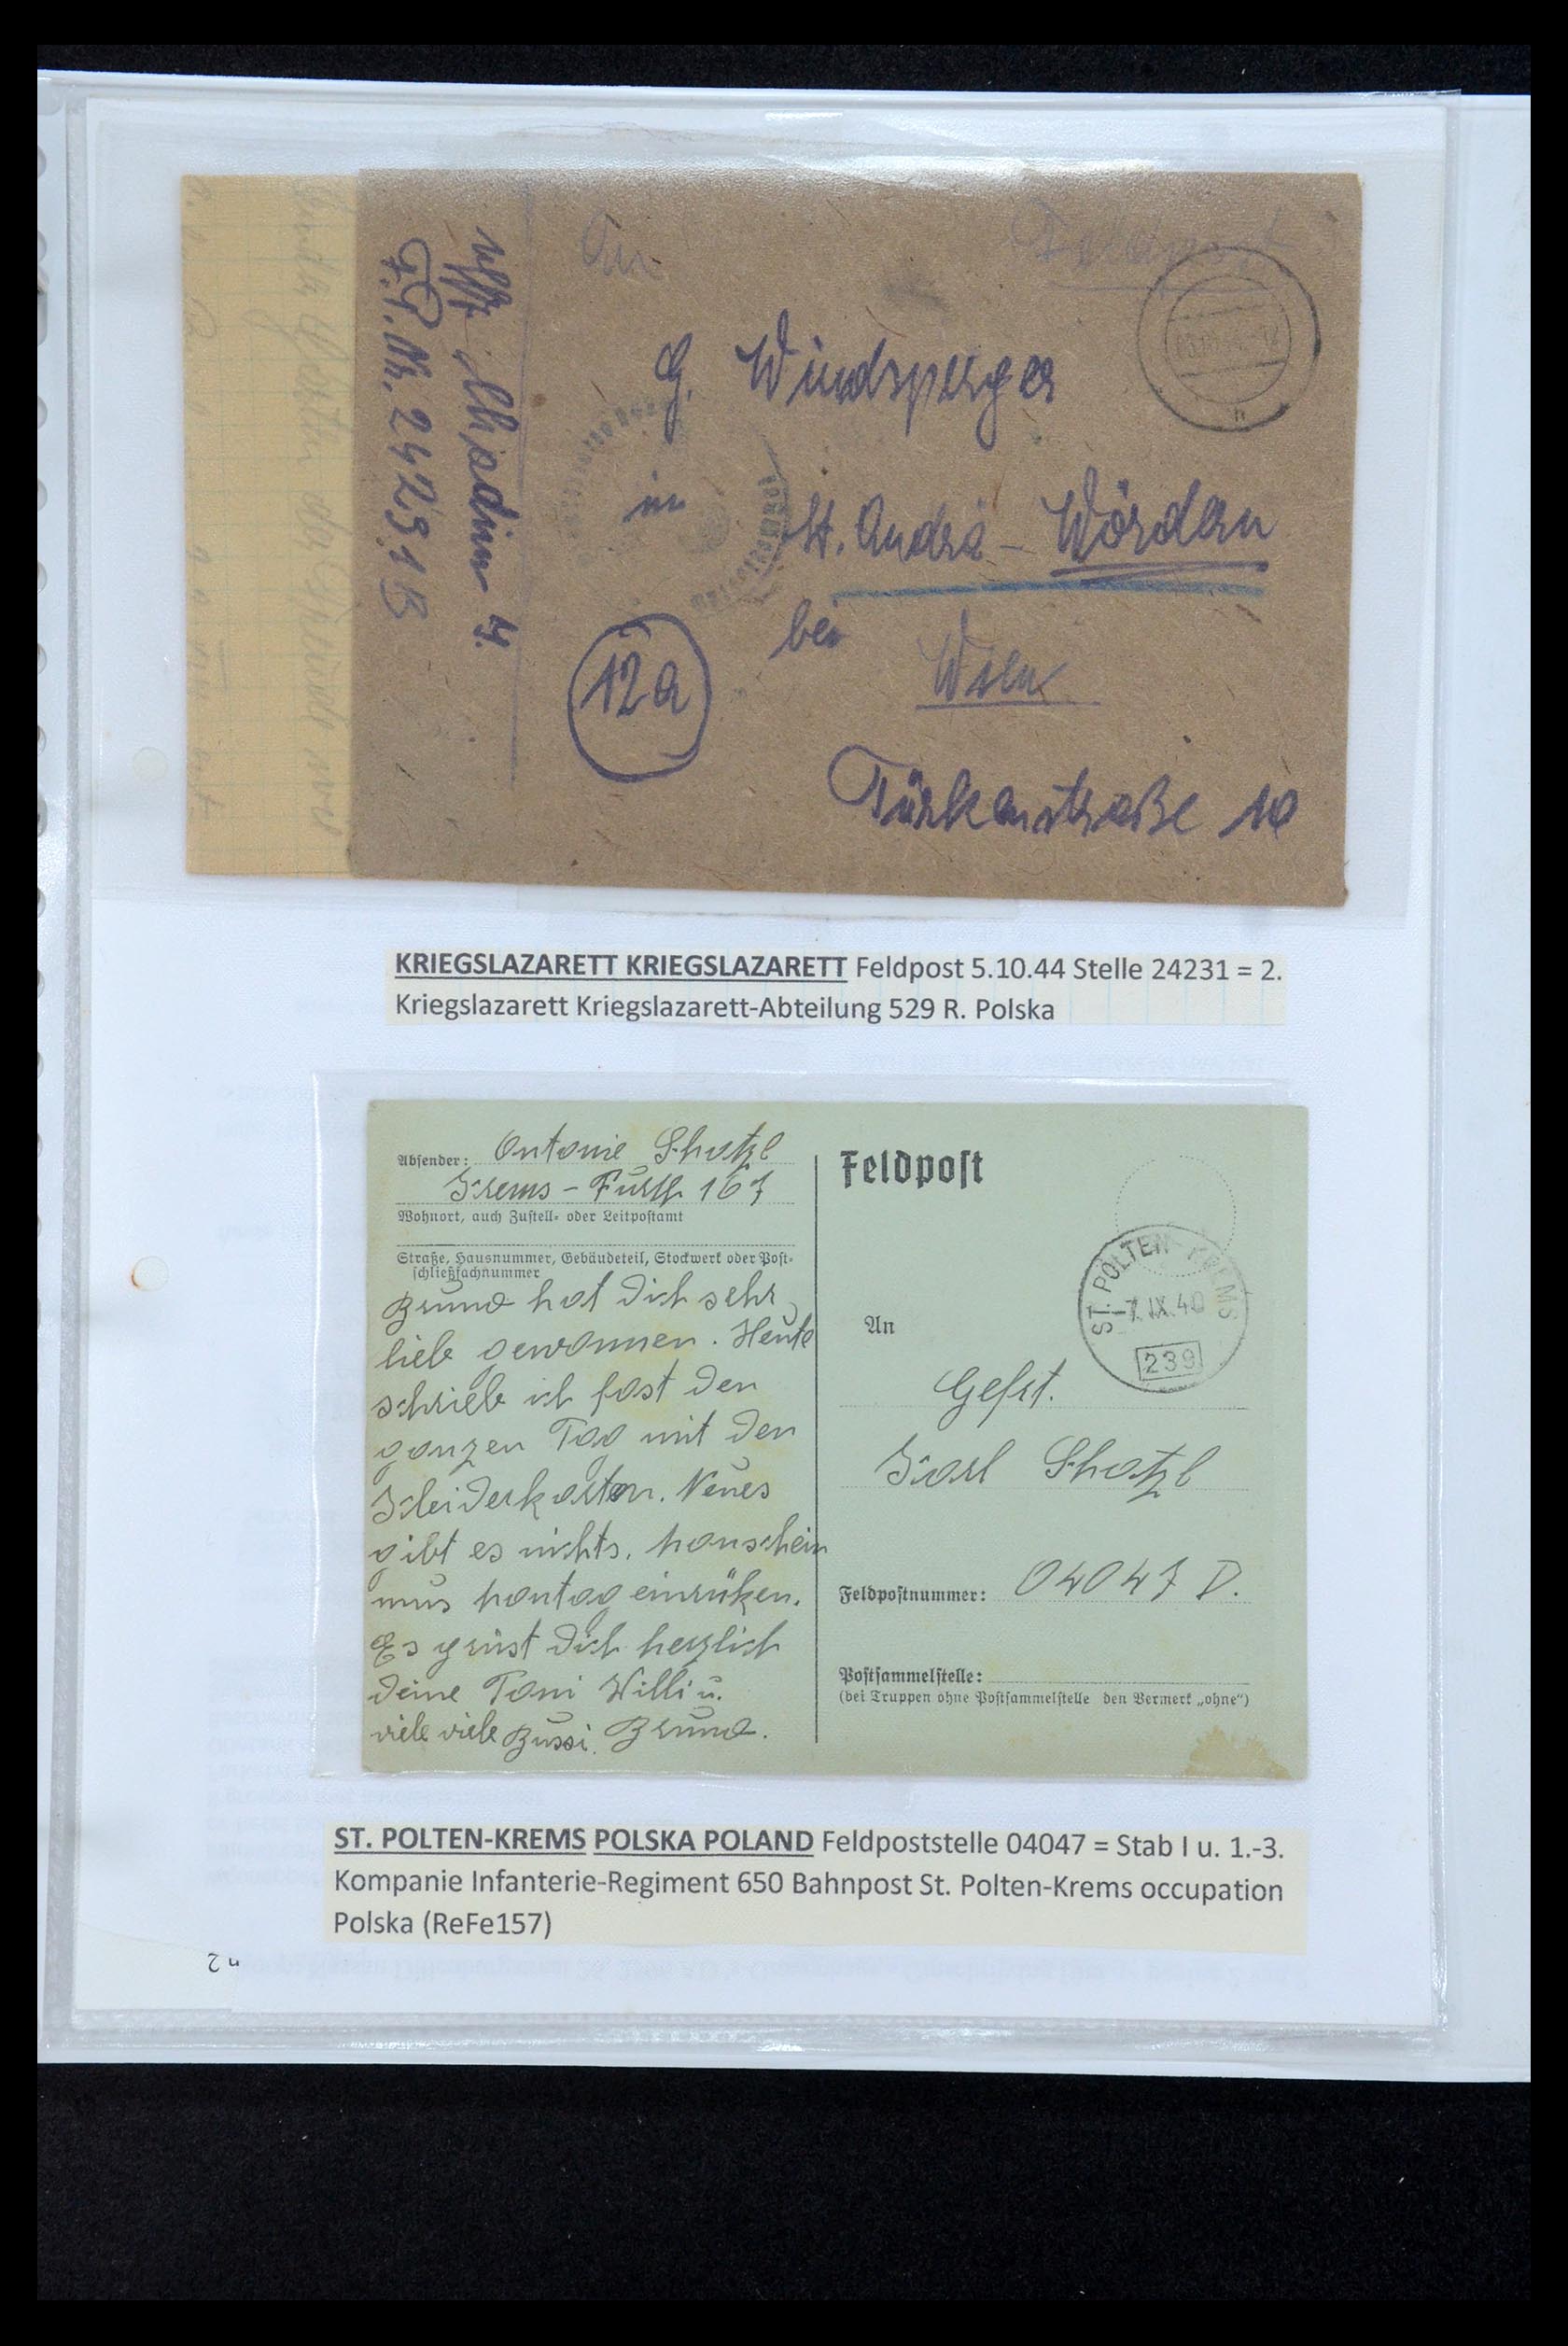 An
Feldpost
G. Windsperger
in
St. Andrä - Wördern
bei
Wien
Türkenstraße 10
12a
Uffz.
F.P. Nr. 24231 B
KRIEGSLAZARETT KRIEGSLAZARETT Feldpost 5.10.44 Stelle 24231 = 2.
Kriegslazarett Kriegslazarett-Abteilung 529 R. Polska
Absender: Antonie Shatzl
Krems - Furth 167
Wohnort, auch Zustell- oder Leitpostamt
Straße, Hausnummer, Gebäudeteil, Stockwerk oder Post-
schließfachnummer
Bruno hat Dich sehr
lieb gewonnen. Heute
schrieb ich fast den
ganzen Tag mit den
Kleiderkarten. Neues
gibt es nichts.
mus Montag einrüken.
Es grüst Dich herzlich
Deine Toni Willi u.
viele viele Bussi. Bruno.
Feldpost
ST. PÖLTEN - KREMS
-7.IX.40
239
An
Gefrt.
Karl Shatzl
Feldpostnummer: 04047 D.
Postsammelstelle:
(bei Truppen ohne Postsammelstelle den Vermerk „ohne“)
ST. POLTEN-KREMS POLSKA POLAND Feldpoststelle 04047 = Stab I u. 1.-3.
Kompanie Infanterie-Regiment 650 Bahnpost St. Polten-Krems occupation
Polska (ReFe157)